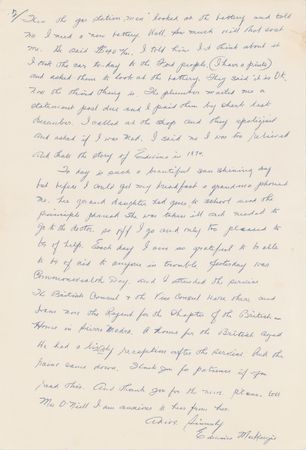 Then the gas station man looked at the battery and told
me I need a new battery. Well, how much will that cost
me. He said $190.00. I told him I'd think about it
I took the car to-day to the Ford people, (I have a pinto)
and asked them to look at the battery. They said it is OK.
Now the third thing is. The plumber mailed me a
statement past due and I paid them by check last
December. I called at the shop and they apologized
and asked if I was mad. I said no I was too relieved
And thats the story of Edwina in 1990.
To day is such a beautiful sun shining day
but before I could get my breakfast a grandma phoned
me. her grand daughter had gone to school and the
principle phoned she was taken ill and needed to
go to the doctor. so off I go and only too pleased to
be of help. Each day I am so grateful to be able
to be of aid to anyone in trouble. Yesterday was
Commonwealth Day. and I attended the service
The British Consul & the Vice Consul were there and
I am now the Regent for the Chapter of the British
Home in Sierra Madre. A home for the British Aged
We had a lovely reception after the service. And the
rain came down. Thank you for patience if you
read this. And thank you for the news. please tell
Mrs O'Neill I am anxious to hear from her.
Sincerely
Edwina MacKenzie